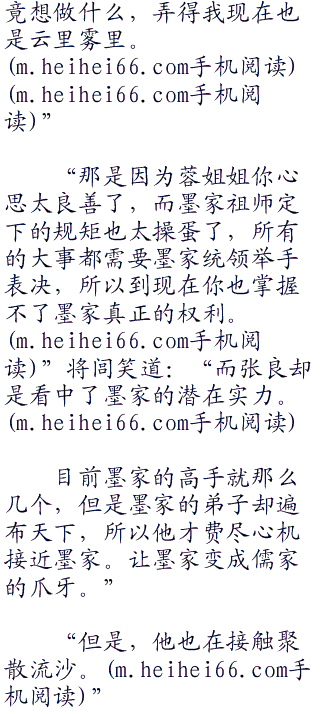 竟想做什么，弄得我现在也
是云里雾里。
(m.heihei66.com手机阅读)
(m.heihei66.com手机阅
读)”
“那是因为蓉姐姐你心
思太良善了，而墨家祖师定
下的规矩也太操蛋了，所有
的大事都需要墨家统领举手
表决，所以到现在你也掌握
不了墨家真正的权利。
(m.heihei66.com手机阅
读)”将闾笑道：“而张良却
是看中了墨家的潜在实力。
(m.heihei66.com手机阅读)
目前墨家的高手就那么
几个，但是墨家的弟子却遍
布天下，所以他才费尽心机
接近墨家。让墨家变成儒家
的爪牙。”
“但是，他也在接触聚
散流沙。(m.heihei66.com手
机阅读)”